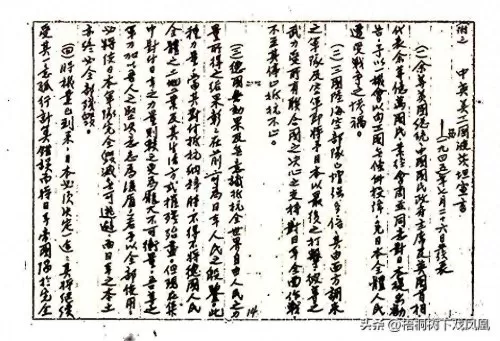 中英美三國波茨坦宣言
一九四五年七月二十六日發表
(一)余等美國總統中國國民政府主席及英國首相
代表余等億萬國民業經會商並同意對日本提出勸
告予以一機會以無條件投降免日本全體人民
遭受戰爭之慘禍。
(二)三國陸海空部隊已增強多倍其由西方調來
之軍隊及空軍即將予日本以最後之打擊彼等之
武力受所有聯合國之决心之支持對日本全面作戰
不至其停止抵抗不止。
(三)德國無效果及無意識抵抗全世界自由人民之力
量所得之結果彰彰在前可爲日本人民之殷鑒此
種力量當其對付抵抗納粹時不得不將德國人民
全體之土地工業及其生活方式摧殘殆盡但現在集
中對付日本之力量則較之更爲龐大不可衡量吾等之
軍力加以吾人之堅决意志爲後盾若予以全部使用
必將使日本軍隊完全毀滅無可逃避而日本之本土
亦終必全部殘毀。
(四)時機業已到來日本必須决定一途其將繼續
受其一意孤行計算錯誤而將日本帝國陷於完全
14
头条 @梧桐树下戏凤凰